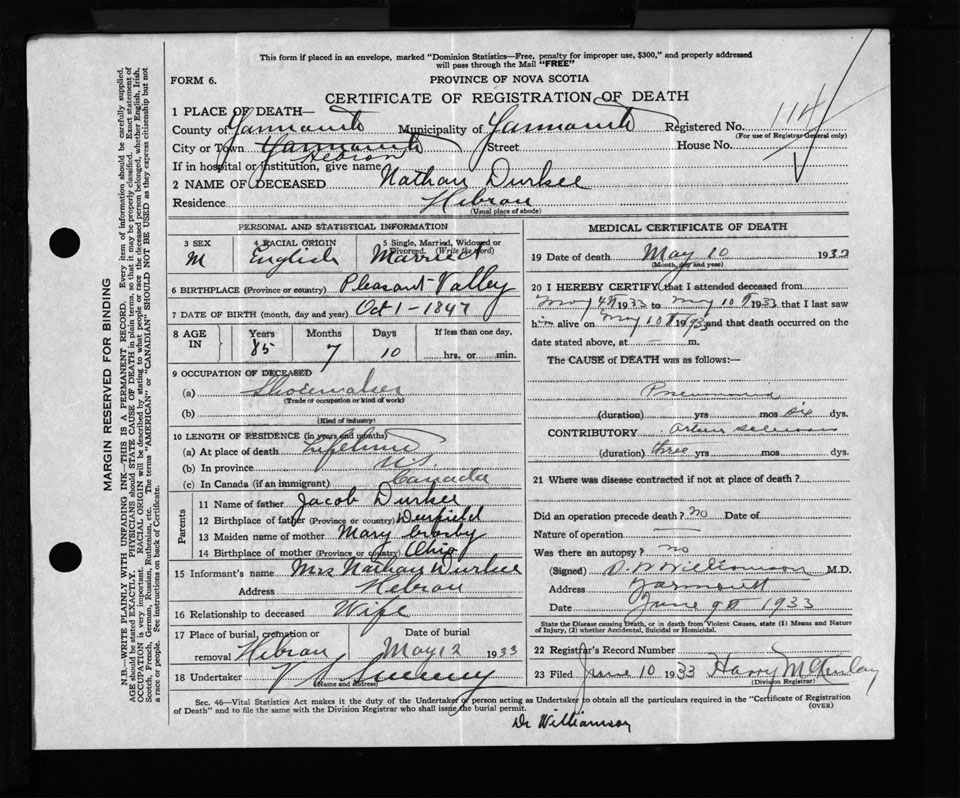 This form if placed in an envelope, marked "Dominion Statistics—Free, penalty for improper use, $300," and properly addressed
will pass through the Mail "FREE"
FORM 6.
PROVINCE OF NOVA SCOTIA
CERTIFICATE OF REGISTRATION OF DEATH
1 PLACE OF DEATH—
County of Yarmouth Municipality of Yarmouth Registered No. 114
(For use of Registrar General only)
City or Town Yarmouth Street House No.
Hebron
If in hospital or institution, give name
2 NAME OF DECEASED Nathan Durkee
Residence Hebron
(Usual place of abode)
PERSONAL AND STATISTICAL INFORMATION
3 SEX M
4 RACIAL ORIGIN English
5 Single, Married, Widowed or Divorced. (Write the word) Married
6 BIRTHPLACE (Province or country) Pleasant Valley
7 DATE OF BIRTH (month, day and year) Oct 1 - 1847
8 AGE IN Years Months Days If less than one day,
85 7 10 hrs. or min.
9 OCCUPATION OF DECEASED
(a) Shoemaker
(Trade or occupation or kind of work)
(b)
(Kind of industry)
10 LENGTH OF RESIDENCE (in years and months)
(a) At place of death Lifetime
(b) In province N.S.
(c) In Canada (if an immigrant) Canada
Parents
11 Name of father Jacob Durkee
12 Birthplace of father (Province or country) Deerfield
13 Maiden name of mother Mary Crosby
14 Birthplace of mother (Province or country) Ohio
15 Informant's name Mrs Nathan Durkee
Address Hebron
16 Relationship to deceased Wife
17 Place of burial, cremation or removal Hebron
Date of burial May 12 1933
18 Undertaker V S Sweeny
(Name and address)
MEDICAL CERTIFICATE OF DEATH
19 Date of death May 10 1933
(Month, day and year)
20 I HEREBY CERTIFY that I attended deceased from
May 4th 1933 to May 10th 1933 that I last saw
him alive on May 10th 1933 and that death occurred on the
date stated above, at — m.
The CAUSE of DEATH was as follows:
Pneumonia
(duration) yrs mos six dys.
CONTRIBUTORY Arterio sclerosis
(duration) three yrs mos. dys.
21 Where was disease contracted if not at place of death?
Did an operation precede death? no Date of
Nature of operation —
Was there an autopsy? no
(Signed) D. W. Williamson M.D.
Address Yarmouth
Date June 9th 1933
State the Disease causing Death, or in death from Violent Causes, state (1) Means and Nature
of Injury, (2) whether Accidental, Suicidal or Homicidal.
22 Registrar's Record Number
23 Filed June 10 1933 Harry
(Division Registrar)
Sec. 46—Vital Statistics Act makes it the duty of the Undertaker or person acting as Undertaker to obtain all the particulars required in the "Certificate of Registration
of Death" and to file the same with the Division Registrar who shall issue the burial permit.
(OVER)
Dr Williamson
MARGIN RESERVED FOR BINDING
N.B.—WRITE PLAINLY WITH UNFADING INK—THIS IS A PERMANENT RECORD. Every item of information should be carefully supplied.
AGE should be stated EXACTLY. PHYSICIANS should STATE CAUSE OF DEATH in plain terms, so that it may be properly classified. Exact statement of
OCCUPATION is very important. RACIAL ORIGIN will be described by stating to what people or race the deceased person belonged, whether English, Irish,
Scotch, French, German, Russian, Ruthenian, etc. The terms "AMERICAN" or "CANADIAN" SHOULD NOT BE USED as they express citizenship but not
a race or people. See instructions on back of Certificate.